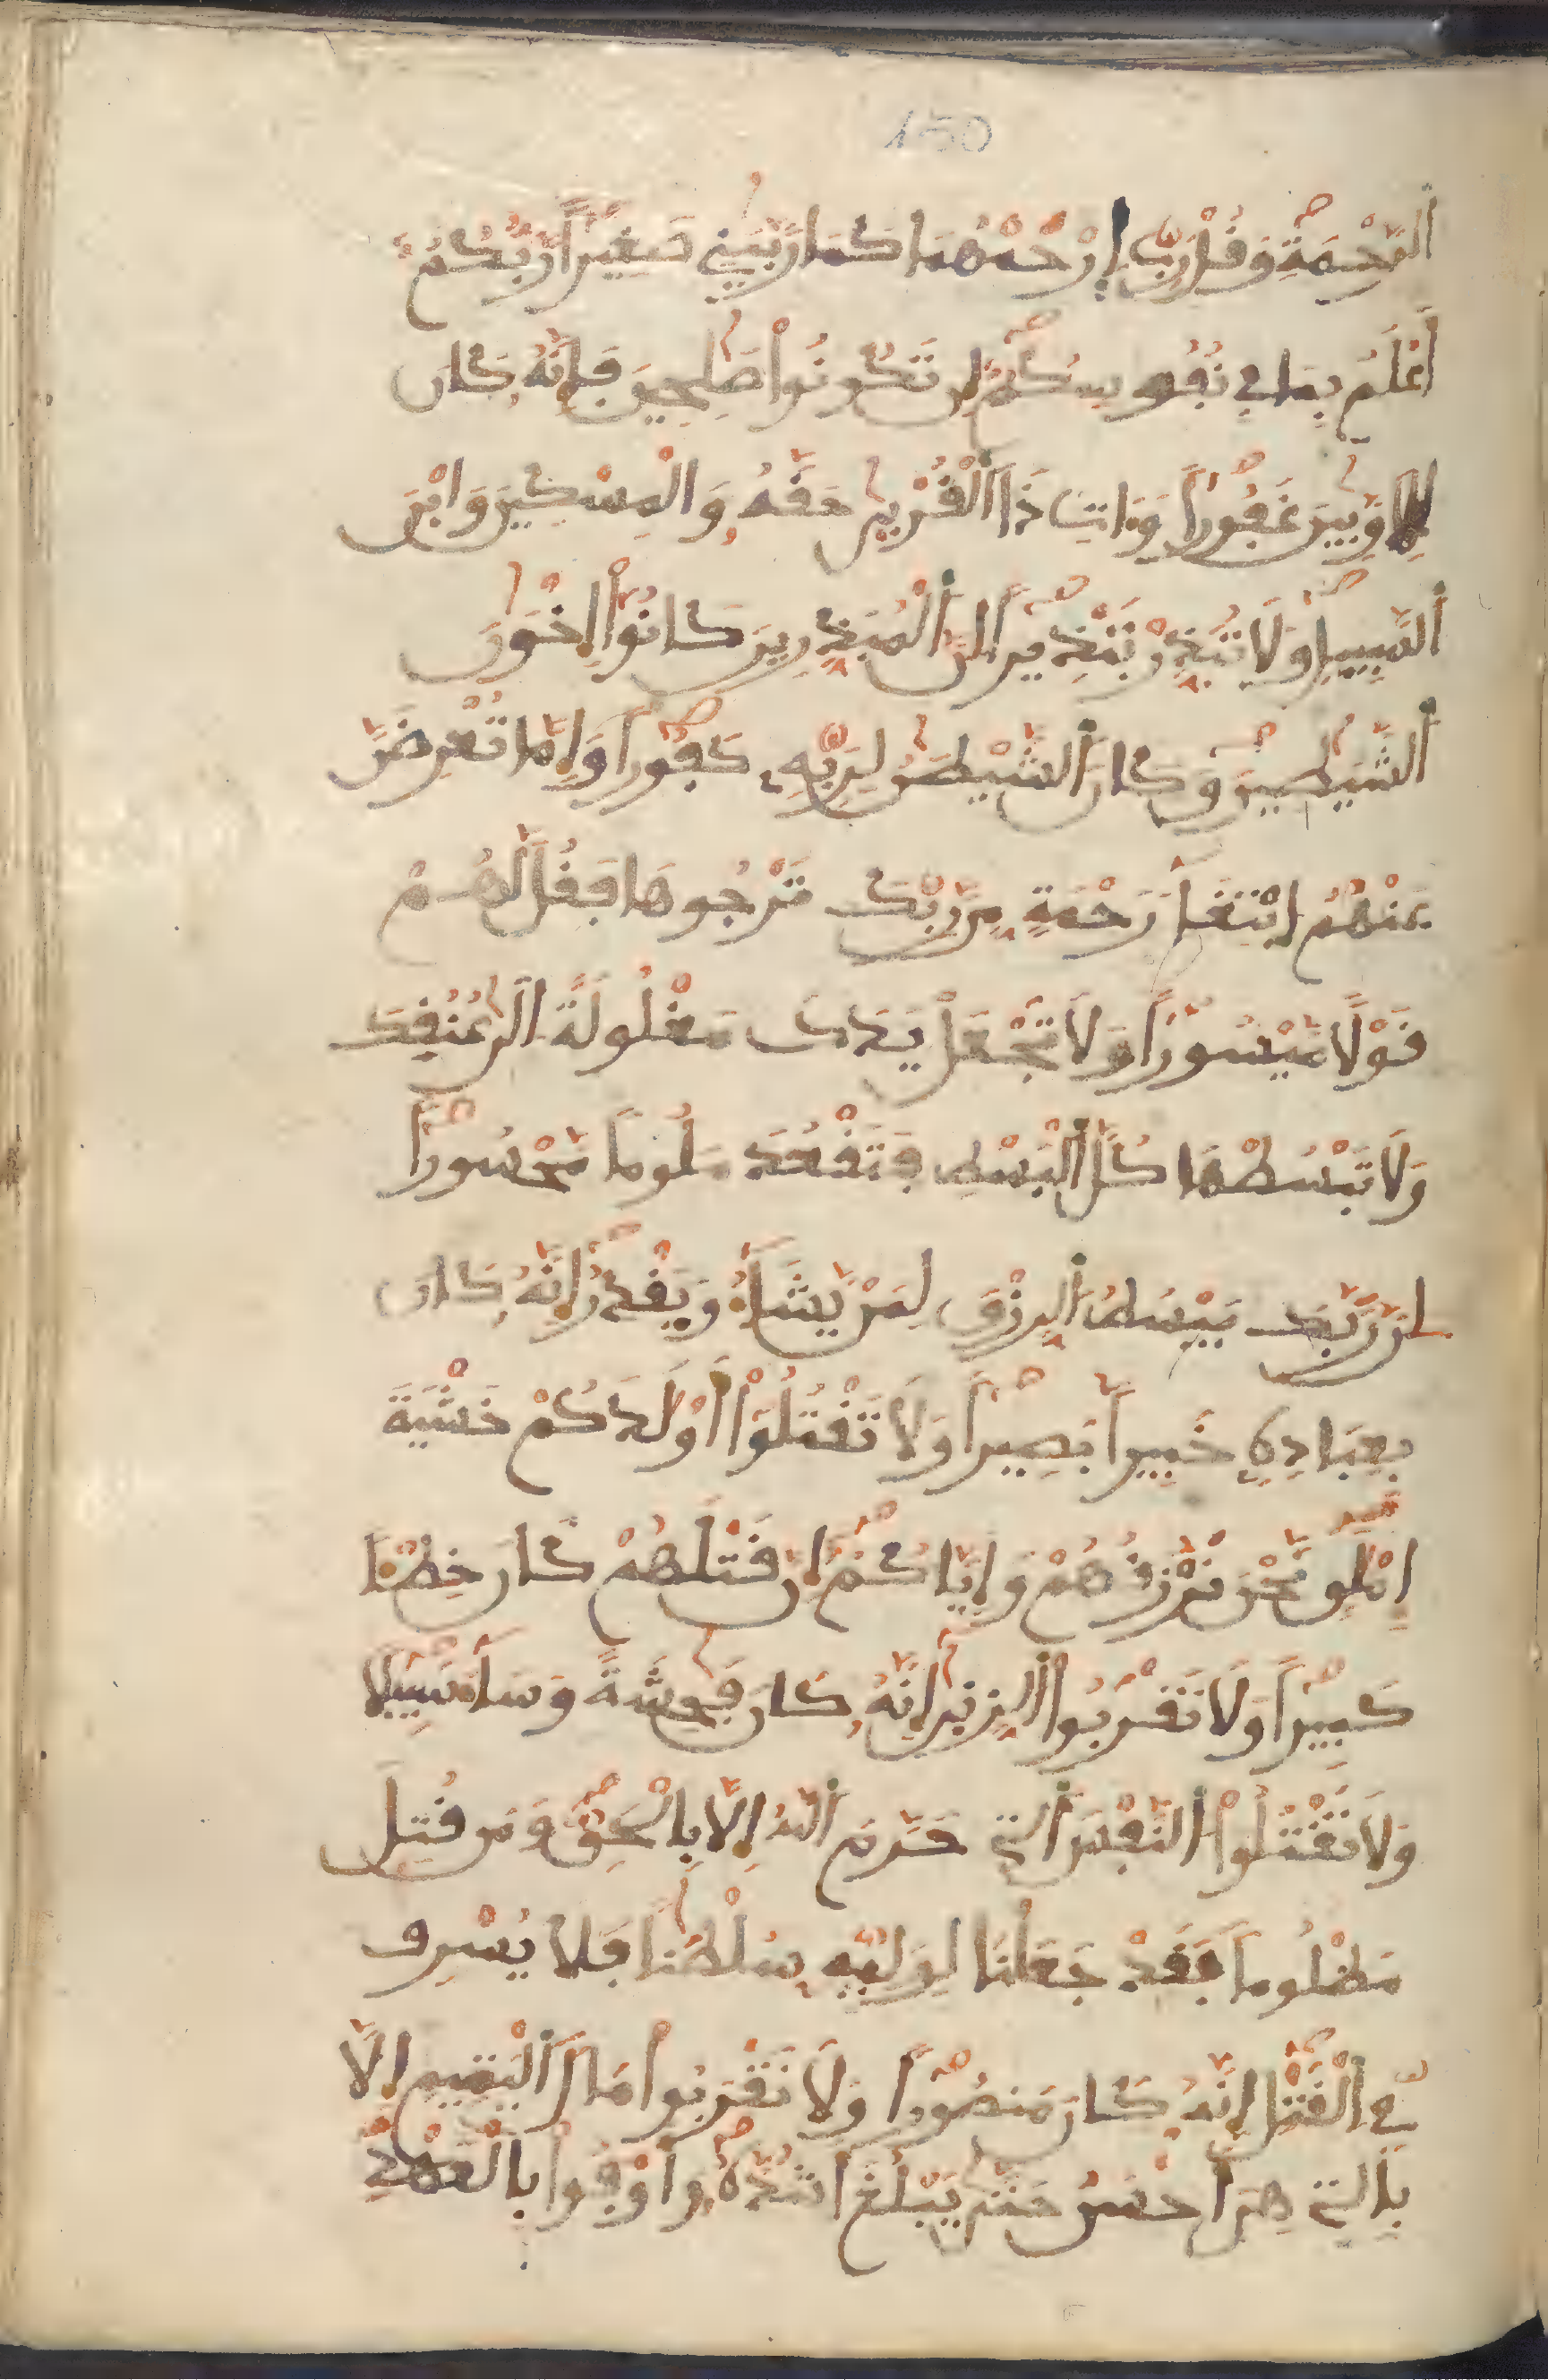 150
اَلرَّحْمَةِ وَقُل رَّبِّ اِرْحَمْهُمَا كَمَا رَبَّيَٰنِي صَغِيراً رَّبُّكُمُۥ
أَعْلَمُ بِمَا فِي نُفُوسِكُمُۥ إِن تَكُونُواْ صَٰلِحِينَ فَإِنَّهُۥ كَانَ
لِلْأَوَّٰبِينَ غَفُوراً وَءَاتِ ذَا اَلْقُرْبَىٰ حَقَّهُۥ وَالْمِسْكِينَ وَابْنَ
اَلسَّبِيلِ وَلَا تُبَذِّرْ تَبْذِيراً إِنَّ اَلْمُبَذِّرِينَ كَانُواْ إِخْوَٰنَ
اَلشَّيَٰطِينِ وَكَانَ اَلشَّيْطَٰنُ لِرَبِّهِۦ كَفُوراً وَإِمَّا تُعْرِضَنَّ
عَنْهُمُ ابْتِغَآءَ رَحْمَةٍ مِّن رَّبِّكَ تَرْجُوهَا فَقُل لَّهُمْ
قَوْلًا مَّيْسُوراً وَلَا تَجْعَلْ يَدَكَ مَغْلُولَةً اِلَىٰ عُنُقِكَ
وَلَا تَبْسُطْهَا كُلَّ اَلْبَسْطِ فَتَقْعُدَ مَلُوماً مَّحْسُوراً
إِنَّ رَبَّكَ يَبْسُطُ اُلرِّزْقَ لِمَنْ يَّشَآءُ وَيَقْدِرُ إِنَّهُۥ كَانَ
بِعِبَادِهِۦ خَبِيراً بَصِيراً وَلَا تَقْتُلُوٓاْ أَوْلَٰدَكُمْ خَشْيَةَ
إِمْلَٰقٍ نَّحْنُ نَرْزُقُهُمْ وَإِيَّاكُمُۥ إِنَّ قَتْلَهُمْ كَانَ خِطْـٔاً
كَبِيراً وَلَا تَقْرَبُواْ اُلزِّنَىٰ إِنَّهُۥ كَانَ فَٰحِشَةً وَسَآءَ سَبِيلًا
وَلَا تَقْتُلُواْ اُلنَّفْسَ اَلتِي حَرَّمَ اَللَّهُ إِلَّا بِالْحَقِّ وَمَن قُتِلَ
مَظْلُوماً فَقَدْ جَعَلْنَا لِوَلِيِّهِۦ سُلْطَٰناً فَلَا يُسْرِف
فِّي اِلْقَتْلِ إِنَّهُۥ كَانَ مَنصُوراً وَلَا تَقْرَبُواْ مَالَ اَلْيَتِيمِ إِلَّا
بِالتِي هِيَ أَحْسَنُ حَتَّىٰ يَبْلُغَ أَشُدَّهُۥ وَأَوْفُواْ بِالْعَهْدِ